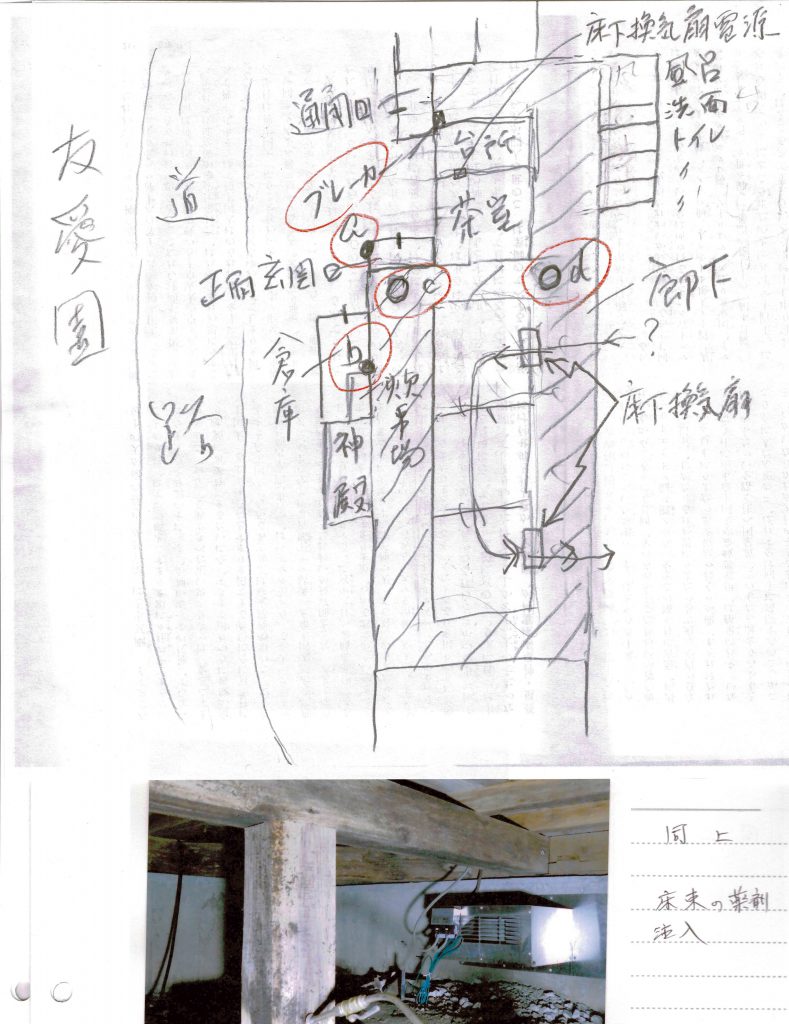 床下換気扇電源
風呂
洗面
トイレ
〃
〃
通用口
台所
ブレーカ
茶室
友愛園
道路
a
正面玄関口
c
d
廊下
?
倉庫
b
床下換気扇
神殿
同上
床束の薬剤
注入